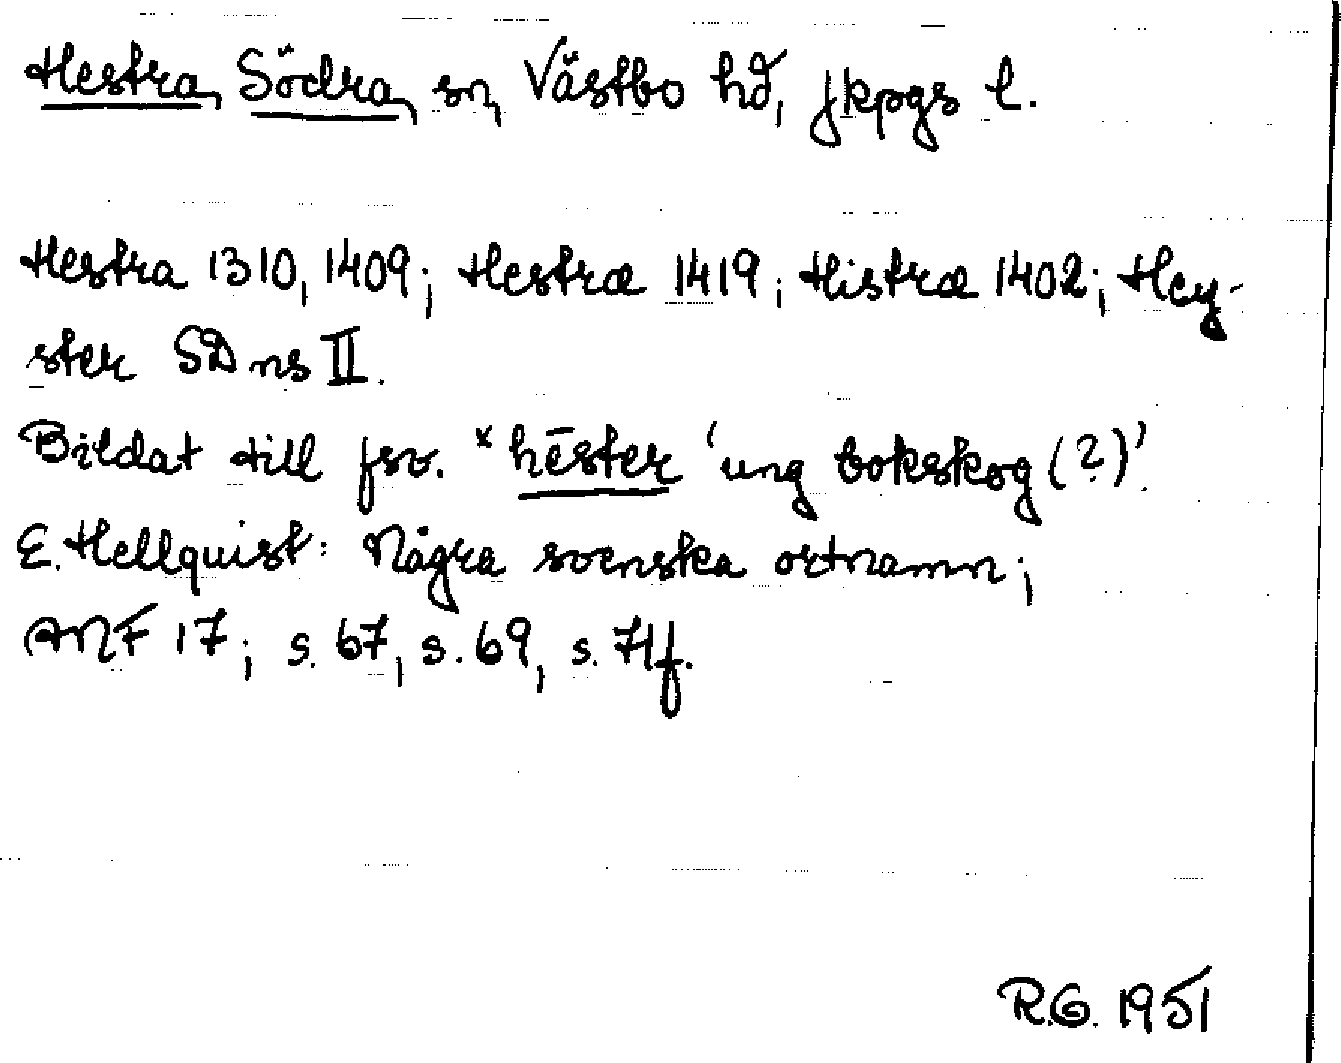 Hestra, Södra, sn, Västbo hd, Jkpgs l.
Hestra 1310, 1409; Hestræ 1419; Histræ 1402; Hey-
ster SD ns II.
Bildat till fsv. *hēster ‘ung bokskog (?)’
E. Hellquist: Några svenska ortnamn;
ANF 17; s. 67, s. 69, s. 71f.
R.G. 1951